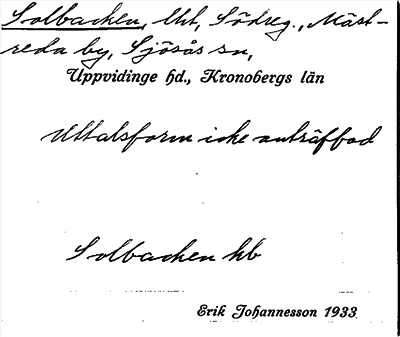 Solbacken, lht, Södreg., Mäst-
reda by, Sjösås sn,
Uppvidinge hd., Kronobergs län
Uttalsform icke anträffad
Solbacken hb
Erik Johannesson 1933